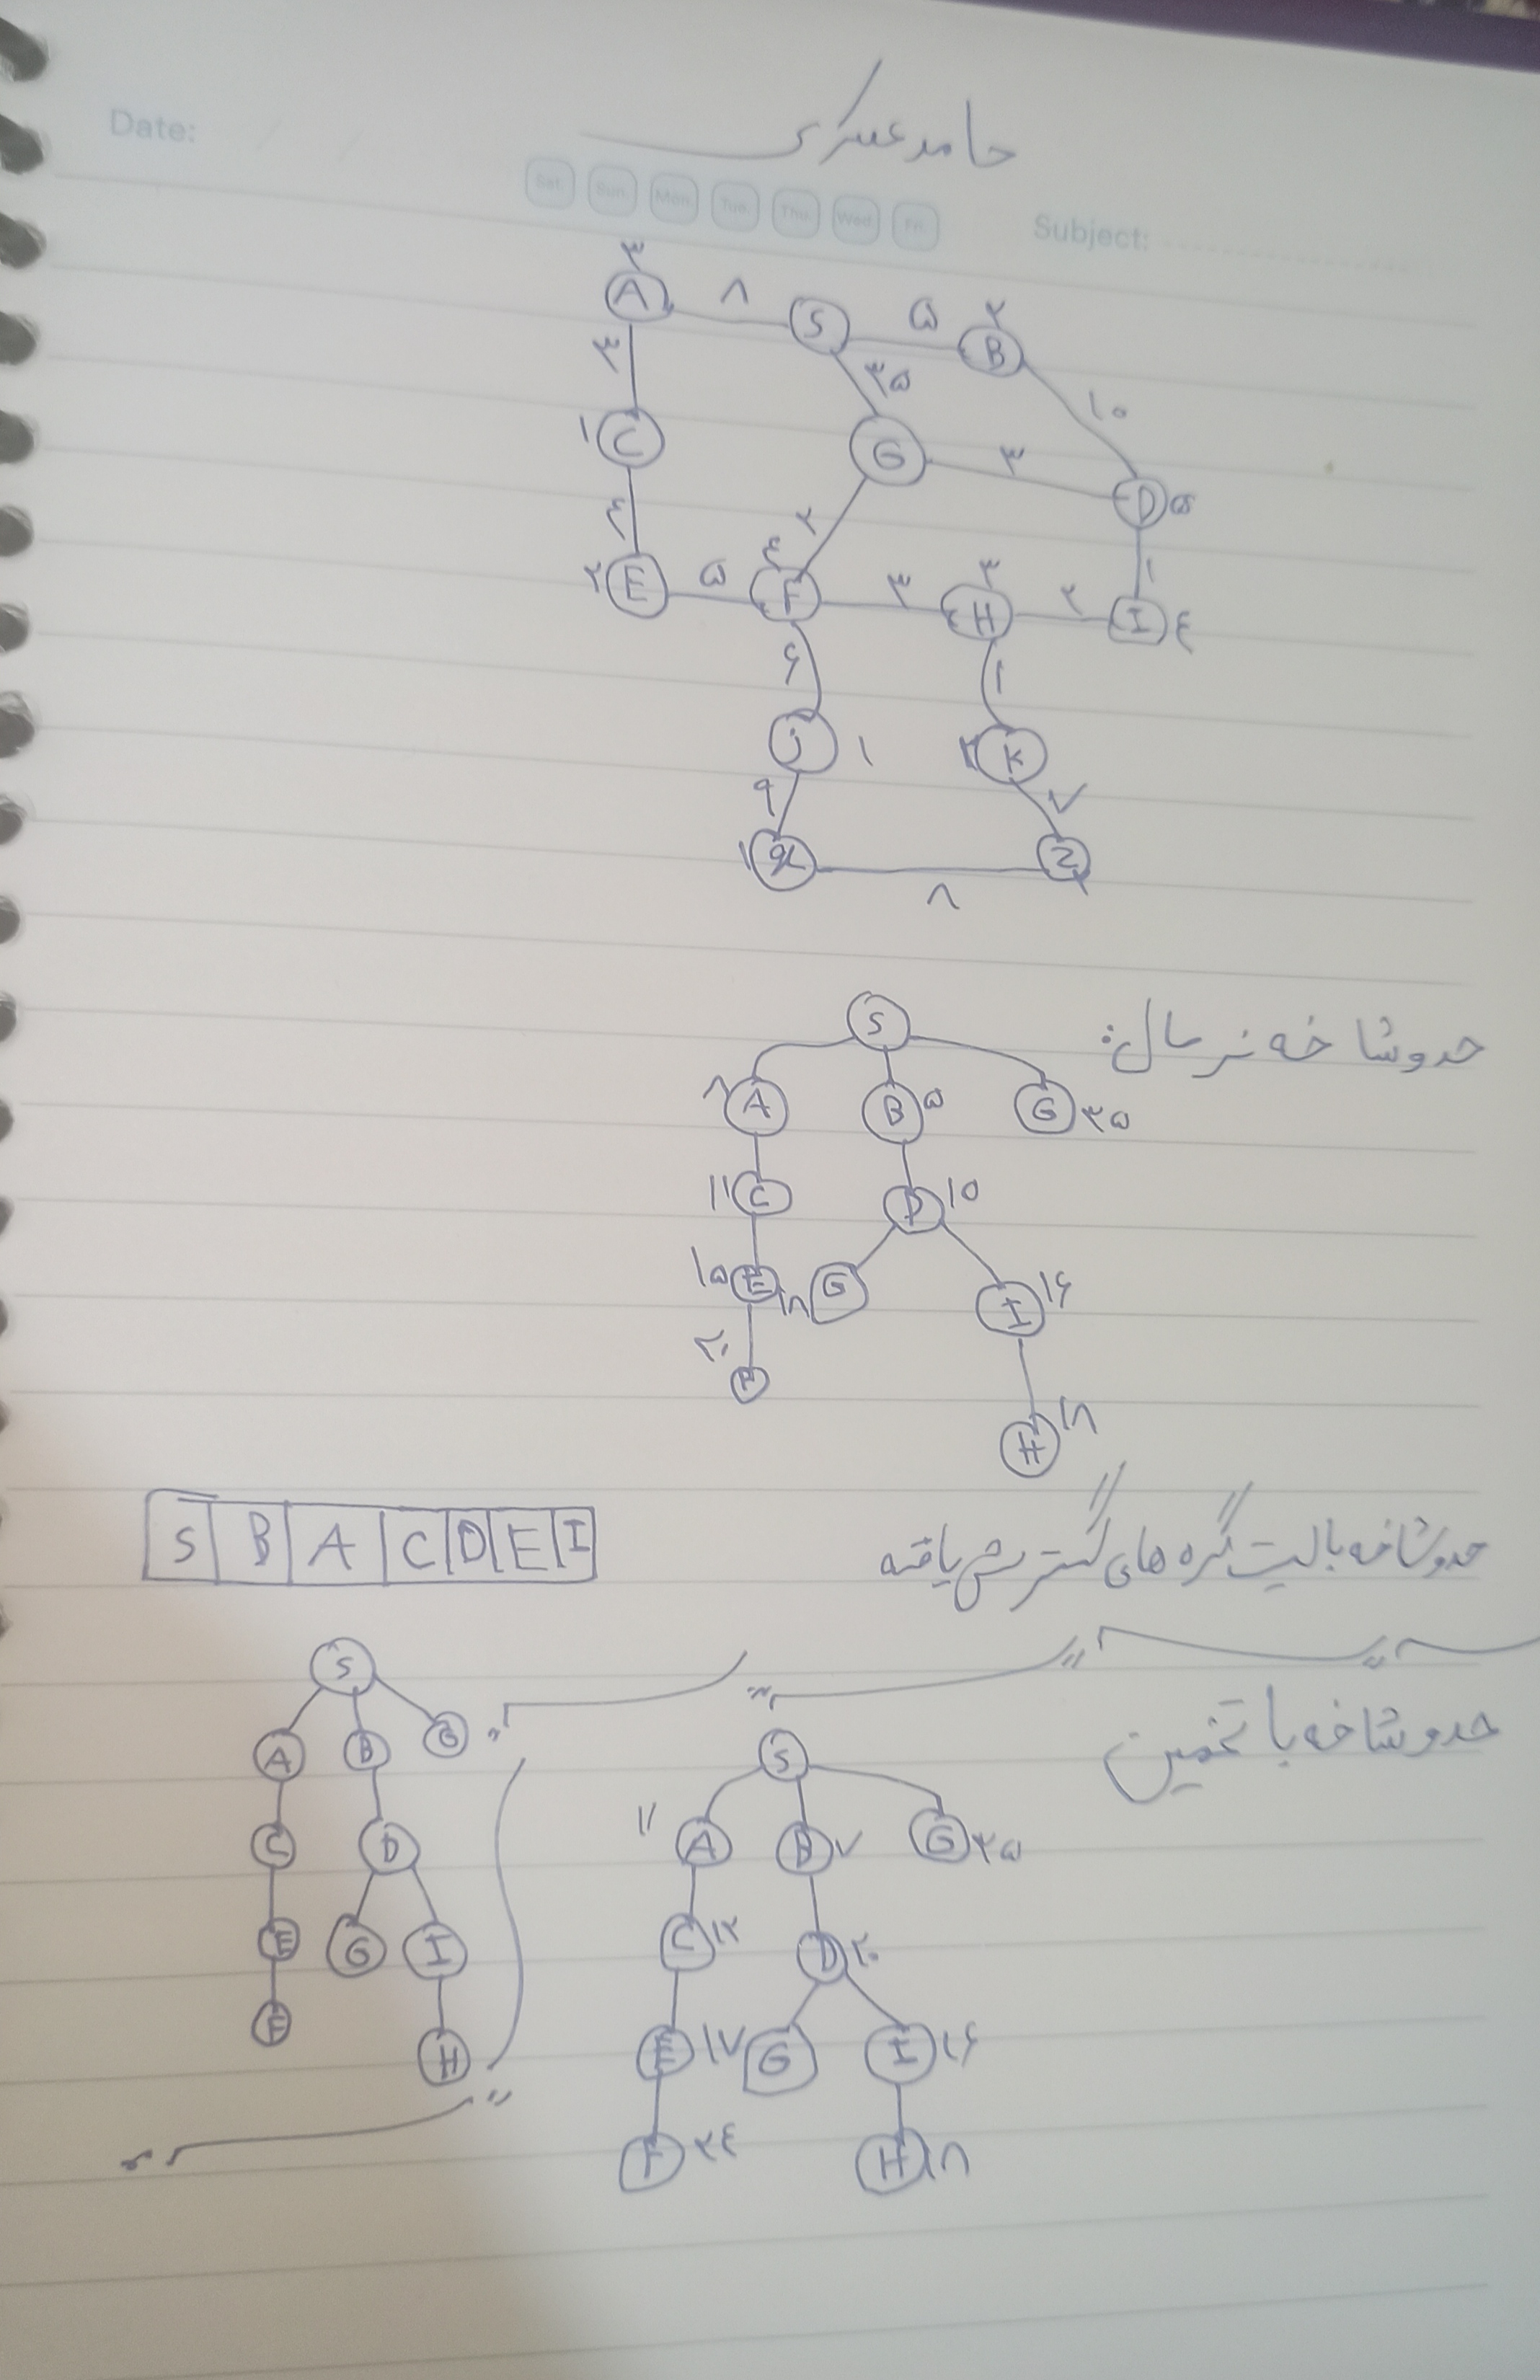 حامد عسکری
Date: / /
Sat. Sun. Mon. Tue. Thu. Wed. Fri.
Subject:
۳
A ۸ S ۵ B ۲
۳ ۳۵ ۱۰
۱ C G ۳ D ۵
٤ ۲ ۱
۲ E ۵ F ٤ ۳ H ۳ ۲ I ٤
۶ ۱
j ۱ K
۹ ۷
۱ Z
۸
حدوشاخه نرمال:
S
۸ A B ۵ G ۳۵
۱۱ C D ۱۵
۱۵ E ۱۸ G I ۱۶
۲۰ F
H ۱۸
حدوشاخه با لیست گره های گسترش یافته
S B A C D E I
S
A B G
C D
E G I
F H
حدوشاخه با تخمین
S
۱۱ A B ۷ G ۳۵
C ۱۲ D ۲۰
E ۱۷ G I ۱۶
F ۲٤ H ۱۸